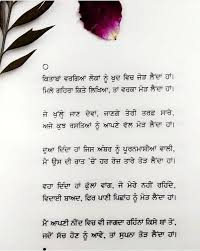 ਕਿਤਾਬਾਂ ਵਰਗਿਆਂ ਲੋਕਾਂ ਨੂੰ ਖੁਦ ਵਿਚ ਜੋੜ ਲੈਂਦਾ ਹਾਂ।
ਮਿਲੇ ਗਹਿਰਾ ਕਿਤੇ ਲਿਖਿਆ, ਤਾਂ ਵਰਕਾ ਮੋੜ ਲੈਂਦਾ ਹਾਂ।
ਜੇ ਖੁੱਲ੍ਹ ਜਾਣ ਦੇਵਾਂ, ਜਾਣਗੇ ਤੇਰੀ ਤਰਫ਼ ਸਾਰੇ,
ਅਜੇ ਕੁਝ ਰਸਤਿਆਂ ਨੂੰ ਆਪਣੇ ਵੱਲ ਮੋੜ ਲੈਂਦਾ ਹਾਂ।
ਦੁਆ ਦਿੰਦਾ ਹਾਂ ਜਿਸ ਅੰਬਰ ਨੂੰ ਪੂਰਨਮਾਸੀਆਂ ਵਾਲੀ,
ਮੈਂ ਉਸ ਦੀ ਰਾਤ 'ਚੋਂ ਹਰ ਰੋਜ਼ ਤਾਰੇ ਤੋੜ ਲੈਂਦਾ ਹਾਂ।
ਵਹਾ ਦਿੰਦਾ ਹਾਂ ਫੁੱਲਾਂ ਵਾਂਗ, ਜੋ ਮੇਰੇ ਨਹੀਂ ਰਹਿੰਦੇ,
ਵਿਦਾਈ ਬਾਅਦ, ਫਿਰ ਪਾਣੀ ਪਿਛਾਂਹ ਨੂੰ ਮੋੜ ਲੈਂਦਾ ਹਾਂ।
ਮੈਂ ਆਪਣੀ ਨੀਂਦ ਵਿਚ ਵੀ ਜਾਗਦਾ ਰਹਿੰਨਾਂ ਕਿਸੇ ਥਾਂ ਤੋਂ,
ਜਦੋਂ ਸੱਚ ਹੋਣ ਨੂੰ ਆਵੇ, ਤਾਂ ਸੁਪਨਾ ਤੋੜ ਲੈਂਦਾ ਹਾਂ।